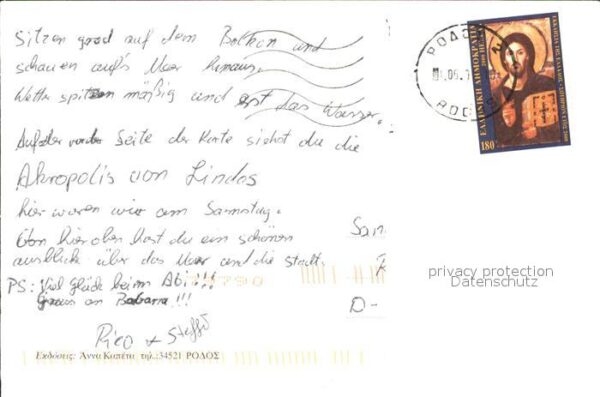 Sitzen grad auf dem Balkon und
schauen aufs Meer hinaus.
Wetter spitzen mäßig und erst das Wasser.
Auf der Seite der Karte siehst du die
Akropolis von Lindos
hier waren wir am Samstag.
Von hier oben hast du ein schönen
ausblick über das Meer und die stadt.
PS: Viel Glück beim Abi!!!
Gruss an Babara!!!
Rico + Steffi
Εκδόσεις: Άννα Καπέτα τηλ.:34521 ΡΟΔΟΣ
ΡΟΔΟΣ
ΕΛΛΗΝΙΚΗ ΔΗΜΟΚΡΑΤΙΑ
180
San
D-
privacy protection
Datenschutz